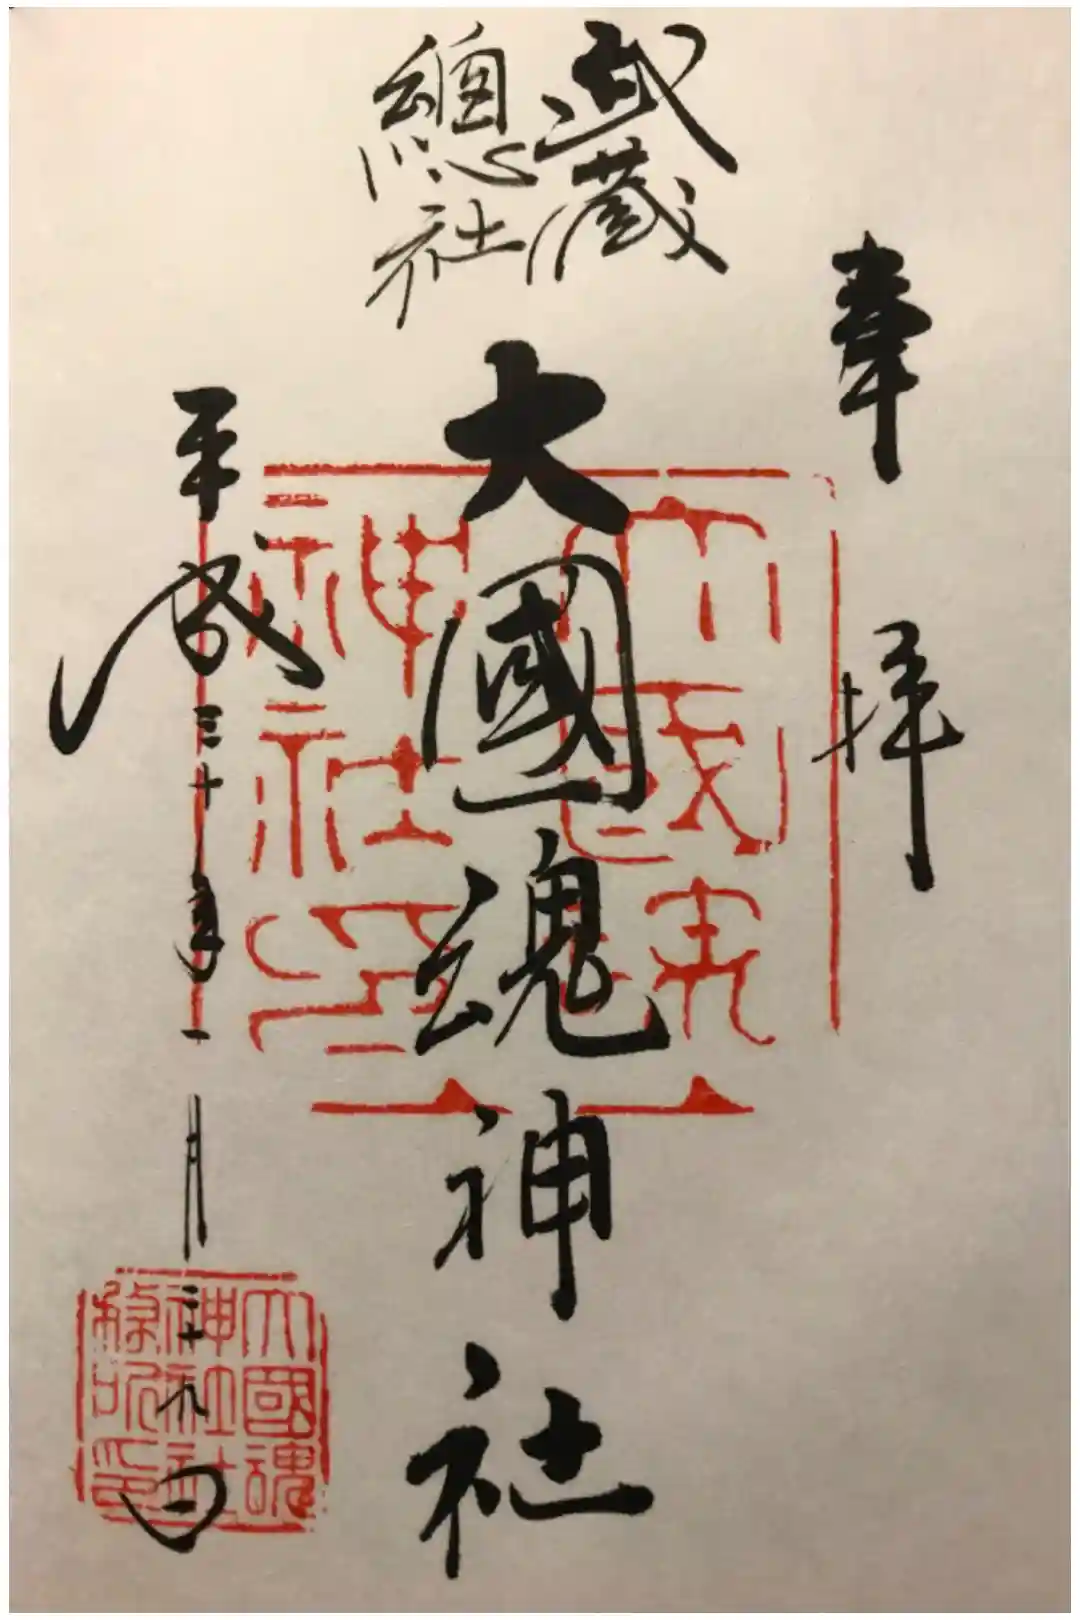 奉拝
武蔵
總社
大國魂神社
平成三十年一月二十九日
大國魂
神社印
大國魂
神社社
務所印